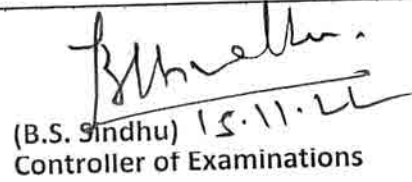 (B.S. Sindhu) 15.11.22
Controller of Examinations